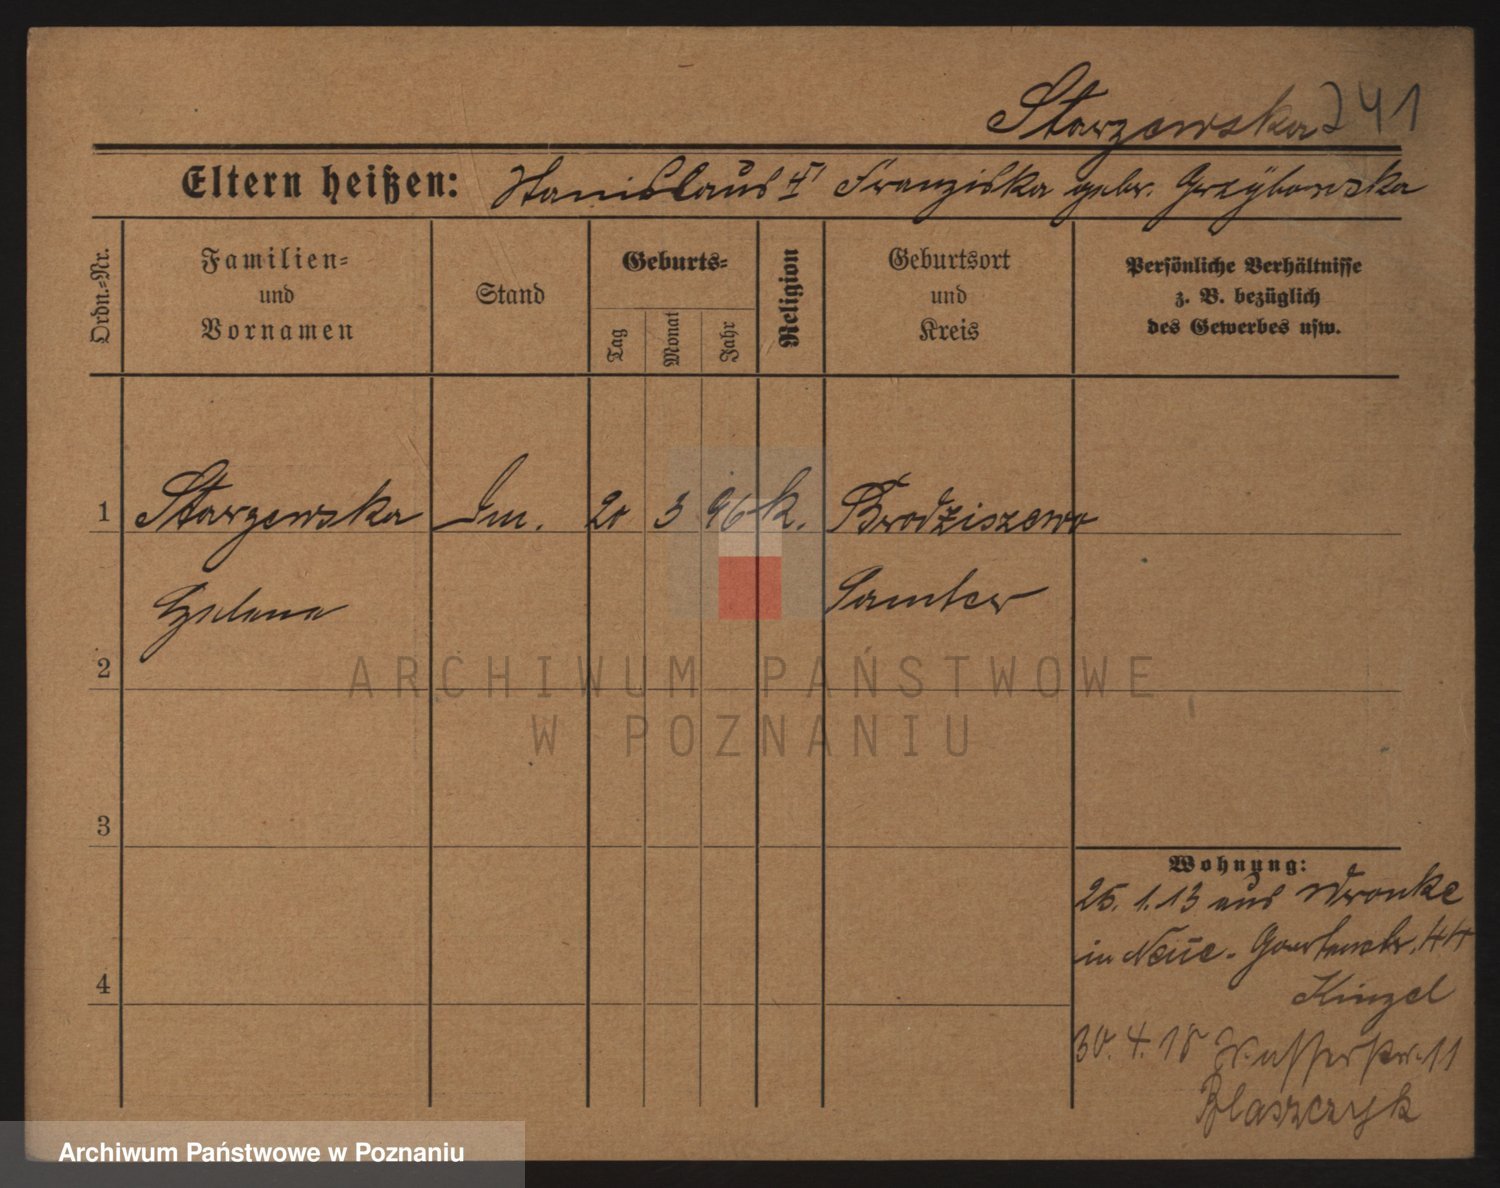 Starzewska 241
Eltern heißen: Stanislaus u. Franziska gebr. Grzybowska
Ordn.-Nr.
Familien-
und
Vornamen
Stand
Geburts-
Tag
Monat
Jahr
Religion
Geburtsort
und
Kreis
Persönliche Verhältnisse
z. B. bezüglich
des Gewerbes usw.
1 Starzewska 20 3 96 k. Brodziszewo
Helena Samter
2
3
4
Wohnung:
26. 1. 13 aus Wronke
in Neue-Gartenstr. 44
Kinzel
30. 4. 18 Wasserstr. 11
Blaszczyk
ARCHIWUM PAŃSTWOWE
W POZNANIU
Archiwum Państwowe w Poznaniu